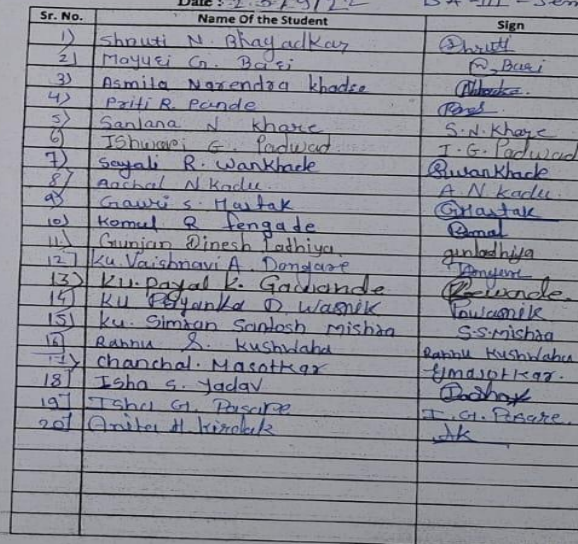 Date : 2.3/9/22 BA-III-Sem
Sr. No. Name Of the Student Sign
1) Shruti N. Bhayadkar Shruti
2) Mayuri G. Bari M. Bari
3) Asmila Narendra Khadse
4) Priti R. Pande
5) Sanjana N Khare S.N. Khare
6) IShwari G. Padwad I.G. Padwad
7) Sayali R. Wankhade SWankhade
8) Aachal N Kadu A N Kadu.
9) Gauri S. Hartak GHartak
10) Komul R Tengade Komal
11) Gunjan Dinesh Ladhiya. gunladhiya
12] Ku. Vaishnavi A. Dongare Dongare
13) Ku. Payal K. Gawande
14] Ku Priyanka D. Wasnik
15] Ku. Simran Santosh Mishra S.S.Mishra
16] Rannu S. Kushwaha Rannu Kushwaha
17) Chanchal. Masotkar masotkar.
18] Isha S. Yadav
19] Isha G. Pusare I. G. Pusare.
20] Anita H. AK